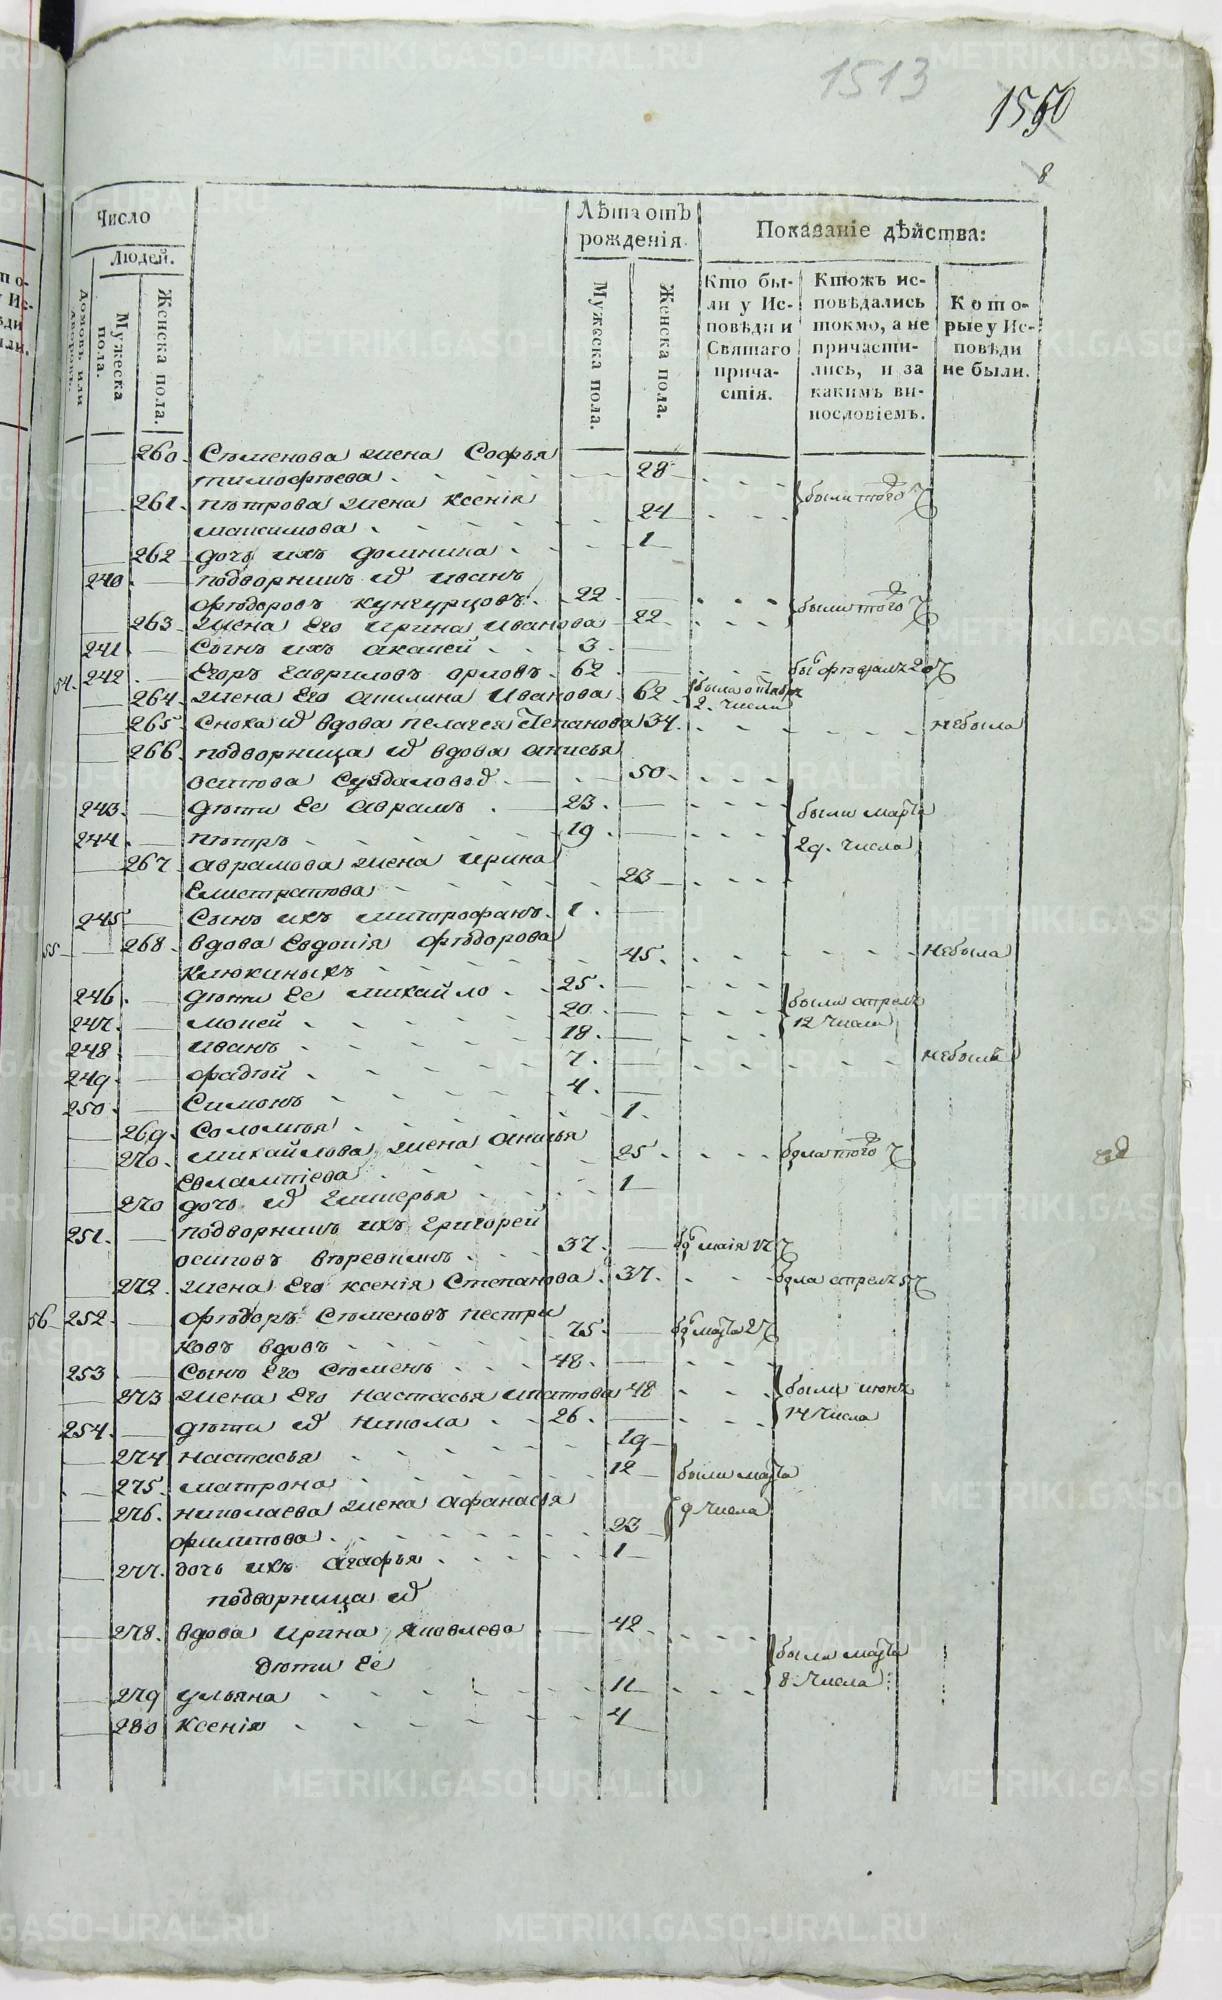 1513
1550
8
Число
Людей.
Домовъ или
дворовъ.
Мужеска
пола.
Женска пола.
Лѣта отъ
рожденія.
Мужеска пола.
Женска пола.
Показаніе дѣйства:
Кто бы-
ли у Ис-
повѣди и
Святаго
прича-
стія.
Ктожъ ис-
повѣдались
токмо, а не
причасти-
лись, и за
какимъ ви-
нословіемъ.
Кото-
рые у Ис-
повѣди
не были.
260. Сѣменова жена Софья
тимофѣева 28
261. пѣтрова жена ксенія были того ч
максимова 24
262 дочь ихъ домника 1
240 подворникъ иванъ
фѣдоровъ кунгурцовъ 22 были того ч
263 жена Его ирина иванова 22
241 Сынъ ихъ 3
54. 242 Егоръ гавриловъ орловъ 62
264 жена Его акилина иванова 62 была октября
2. числа
265 Сноха вдова пелагея Степанова 34. небыла
266. подворница вдова анисья
осипова Суздаловы 50
243. дѣти Ее аврамъ 23. были марта
244 пѣтръ 19. 29. числа
267 аврамова жена ирина
Елистратова 23
245 Сынъ ихъ митрофанъ 1.
55 268. вдова Евдокія фѣдорова
Клюкиныхъ 45. небыла
246. дѣти Ее михайло 25. были
247. мокей 20 12 числа
248 иванъ 18.
249. фадѣй 7. небылъ
250. Симонъ 4.
269. Соломѣя 1.
270. михайлова жена анисья
Евлампіева 25 была того ч
270 дочь гликерья 1
251. подворникъ ихъ григорей
осиповъ 37. маія 17
272. жена Его ксенія Степанова 37.
56 252. фѣдоръ Сѣменовъ пестри
ковъ вдовъ 75 марта 27
253 Сынъ Его Сѣменъ 48.
273 жена Его настасья 48 были июня
254. дѣти никола 26. 14 числа
274 настасья 19
275. матрона 12 были марта
276. николаева жена афанасья 9 числа
филипова 23
277. дочь ихъ агафья 1
подворница
278. вдова ирина яковлева 42 были марта
дѣти Ее 8 числа
279 ульяна 11
280 ксенія 4
METRIKI.GASO-URAL.RU